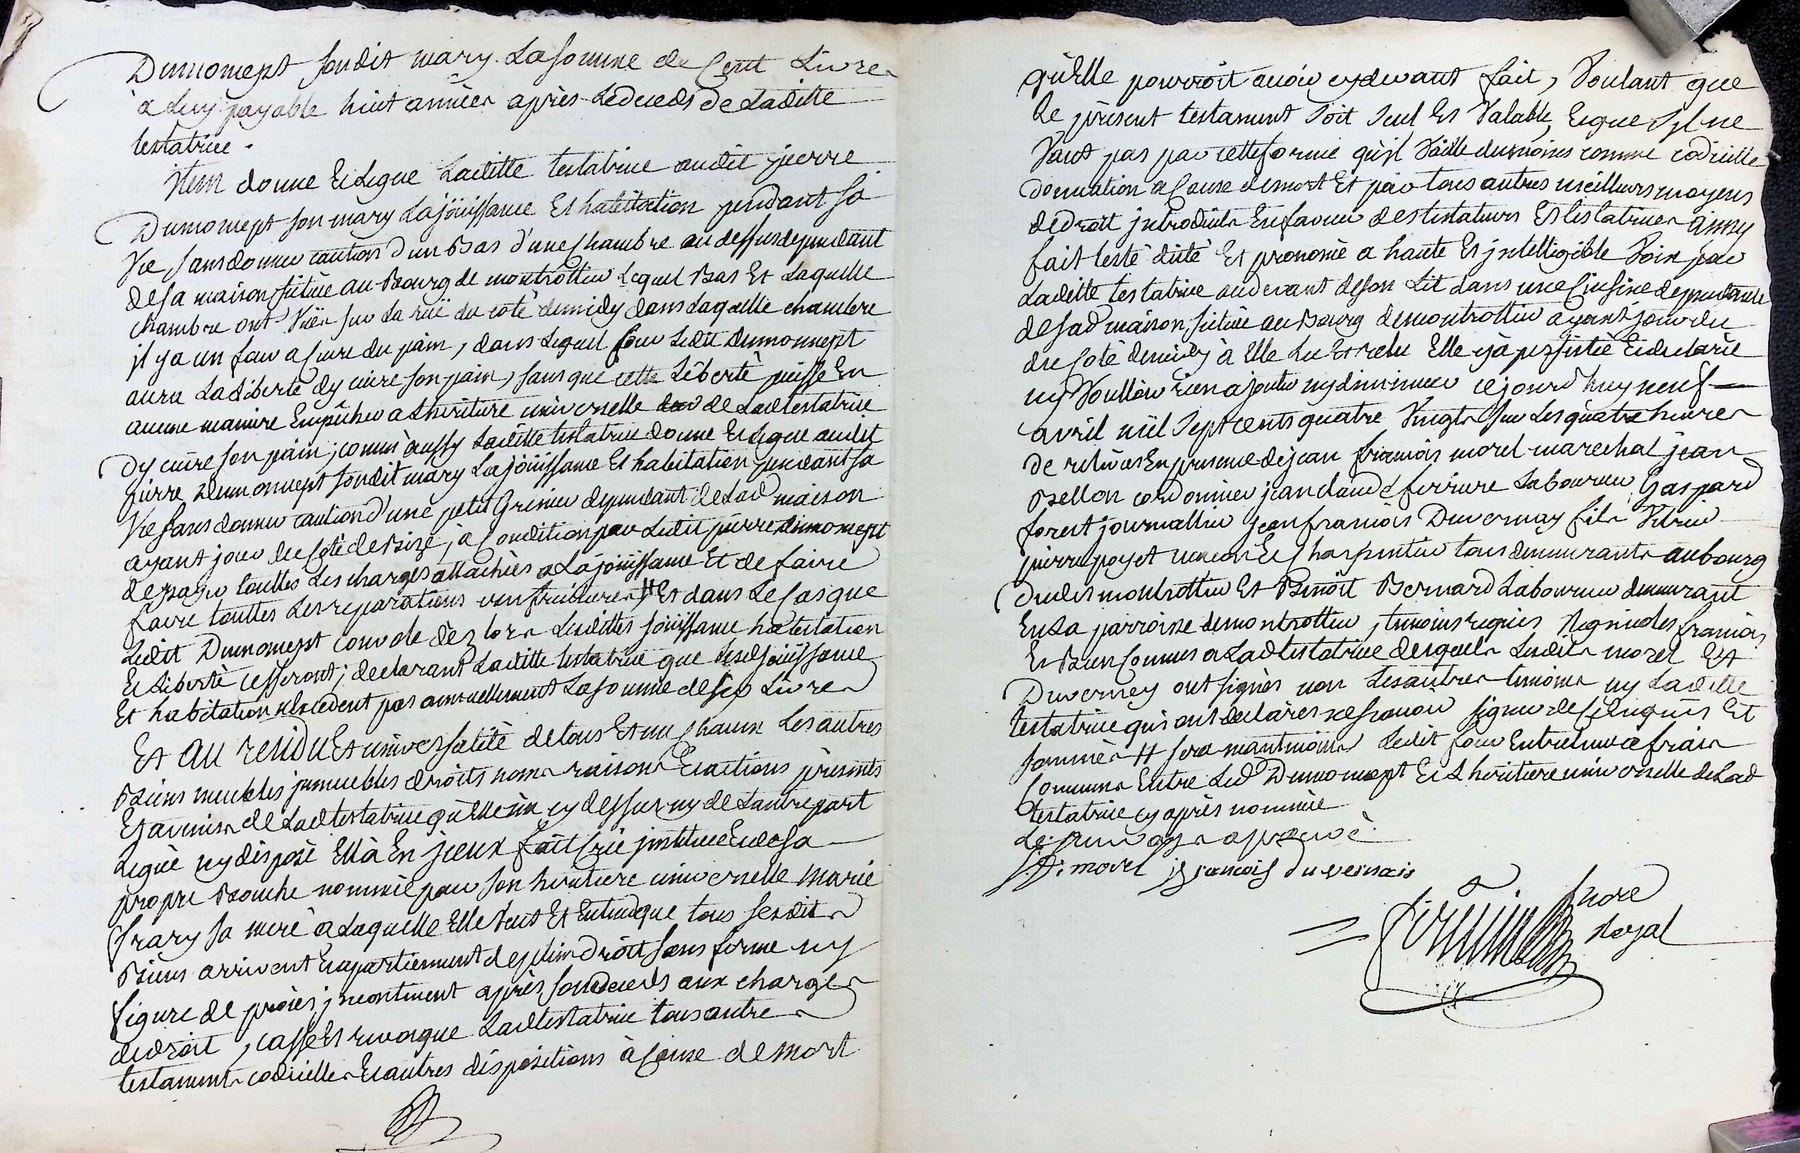 Dumoncept sondit mary La somme de Cent Livres
a Luy payable huit années après Le deceds de Laditte
testatrice.
Item donne Et Legue Laditte testatrice audit pierre
Dumoncept son mary La joüissance Et habitation pendant sa
Vie sans donner caution d'un Bas d'une Chambre au dessus dependant
de sa maison sitüée au Bourg de montrottier Lequel Bas Et Laquelle
chambre ont Vües sur La rüe du coté de midy dans Laquelle chambre
il y a un four a Cuire du pain, dans Lequel four Ledit Dumoncept
aura La Liberté dy cuire son pain, sans que cette Liberté puisse En
aucune maniere Empêcher a Lheritiere universelle de Lad testatrice
dy cuire son pain; comm'aussy Laditte testatrice donne Et Legue audit
pierre Dumoncept sondit mary La joüissance Et habitation pendant sa
Vie sans donner caution d'une petit Grenier dependant de Lad maison
ayant jour du Coté de Bize, a Condition par Ledit pierre Dumoncept
de payer touttes Les charges attachées a La joüissance Et de faire
faire touttes Les reparations usufruitieres H Et dans Le Cas que
Ledit Dumoncept convole dèz lors Lesdittes joüissance habitation
Et Liberté cesseront; declarant Laditte testatrice que Lesd joüissance
Et habitation n'Excedent pas annuellement La somme de six Livres
Et au residu Et universalité de tous Et un Chacun Les autres
Biens meubles jmmeubles droits noms raisons Et actions présents
Et avenirs de Lad testatrice qu'elle n'a cy dessus ny de Lautre part
Legué ny disposé Ellà En jceux fait Créé jnstitué Et de sa
propre Bouche nommée pour son heritiere universelle Marie
frary sa mere a Laquelle Elle Veut Et Entend que tous sesdits
Biens arrivent Et apartiennent de plein droit sans forme ny
figure de procès; jncontinent après son deceds aux charges
de droit, casse Et revoque Lad testatrice tous autres
testaments codicilles Et autres dispositions à Cause de mort
qu'Elle pourroit avoir cy devant fait, Voulant que
Le présent testament soit seul Et Valable, Et que S'yl ne
Vaut pas par cette forme qu'yl Vaille du moins comme codicille
donnation a Cause de mort Et par tous autres meilleurs moyens
de Droit jntroduits En faveur des testateurs Et testatrices ainsy
fait testé dicté Et prononcé a haute Et jntelligible Voix par
Laditte testatrice au devant de son Lit dans une Cuisine dependante
de sad maison, sitüée au Bourg de montrottier ayant jour du
du Coté de midy à Elle Lu Et relu Elle y à persisté Et declaré
ny Voulloir rien ajouter ny diminuer cejourd'huy neuf
avril mil sept cents quatre Vingt sur Les quatre heures
de relevée En presence de jean françois morel marechal jean
Bellon cordonnier jean claude ferriere Laboureur Gaspard
forest journallier jean françois Duvernay fils
pierre poyet Charpentier tous demeurants au bourg
dudit montrottier Et Benoît Bernard Laboureur demeurant
En La parroisse de montrottier, temoins requis françois
Et Bien Connus a Lad testatrice desquels Lesdits morel Et
Duverney ont signés non Les autres temoins ny Laditte
testatrice qui ont declarés ne sçavoir signer de Ce Enquis Et
sommés H sera neantmoins Ledit four Entretenu a frais
Communs Entre Led Dumoncept Et Lheritiere universelle de Lad
testatrice cy après nommée
Le renvoy approuvé
j: f: morel j françois duvernais
nore
Royal